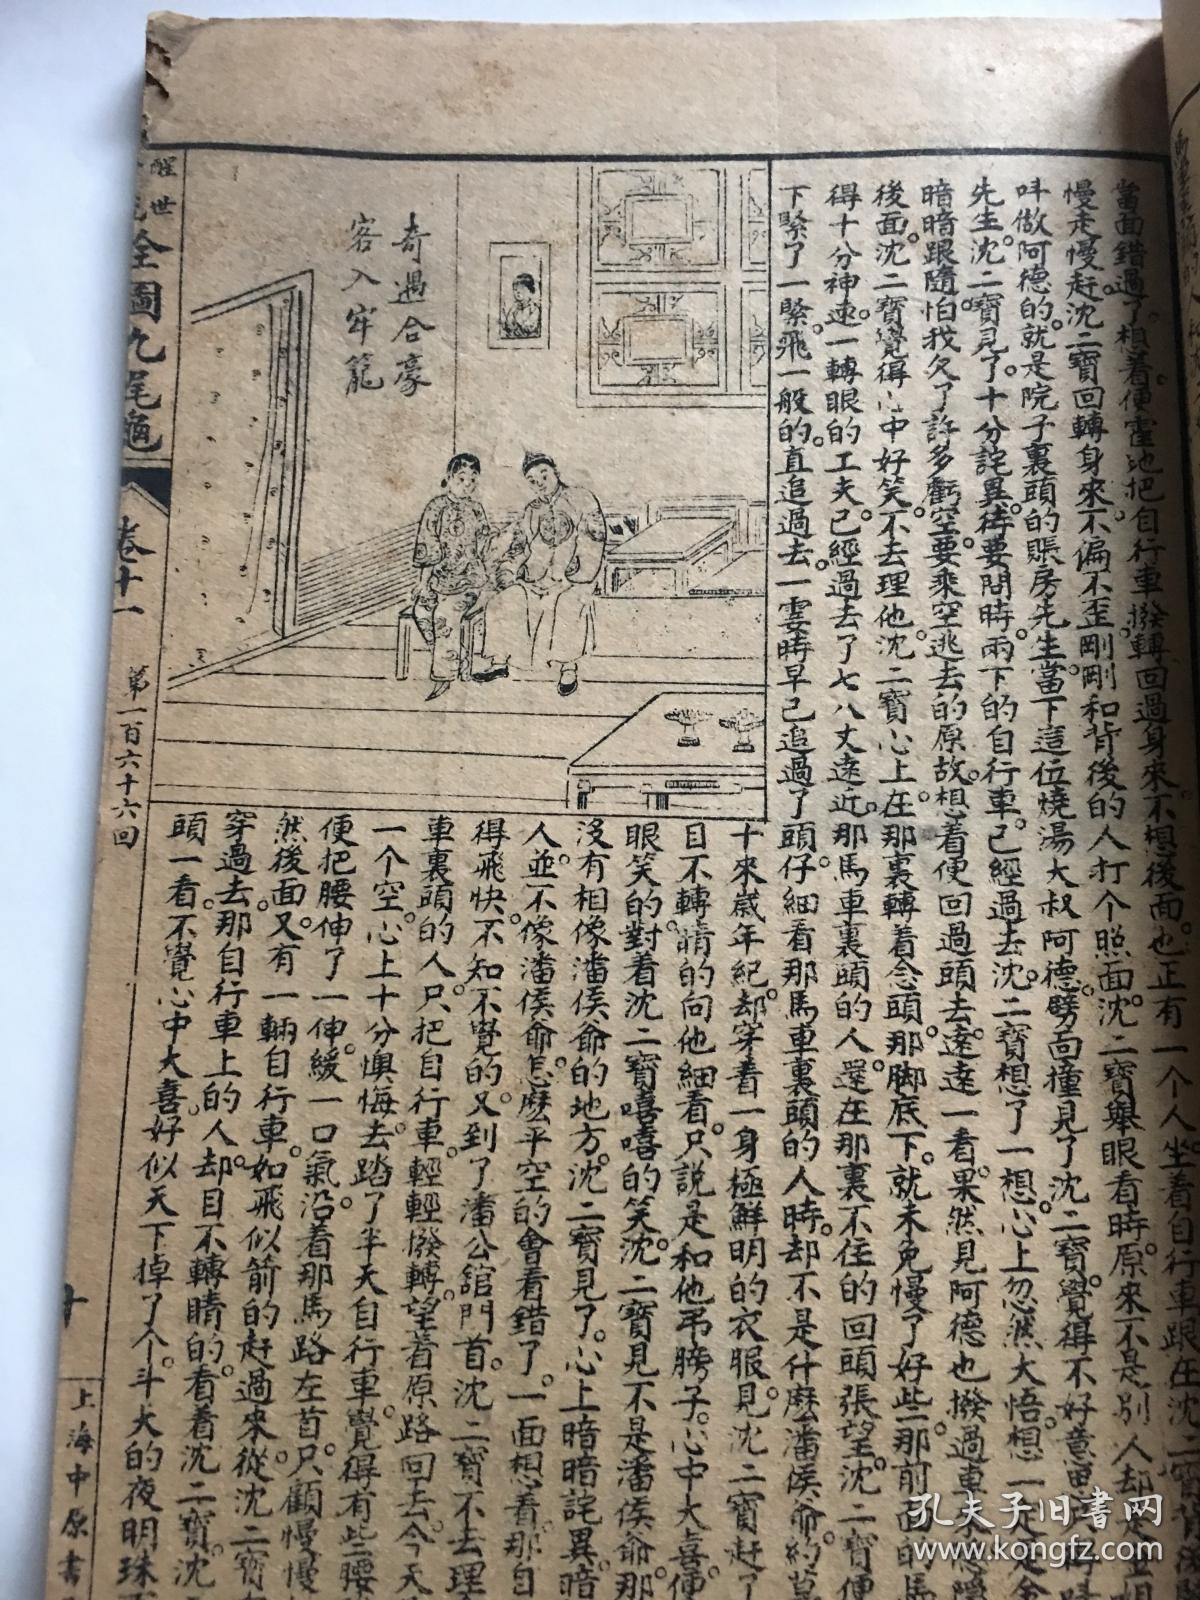 當面錯過了想着便霍地把自行車撥轉回過身來不想後面也正有一個人坐着自行車跟在沈二寶背後
慢走慢趕沈二寶回轉身來不偏不歪剛剛和背後的人打个照面沈二寶舉眼看時原來不是別人却是
呌做阿德的就是院子裏頭的賬房先生當下這位燒湯大叔阿德劈面撞見了沈二寶覺得不好意思
先生沈二寶見了十分詫異待要問時兩下的自行車已經過去沈二寶想了一想心上忽然大悟想一定是
暗暗跟隨怕我欠了許多虧空要乘空逃去的原故想着便回過頭去遠遠一看果然見阿德也撥過車
後面沈二寶覺得心中好笑不去理他沈二寶心上在那裏轉着念頭那脚底下就未免慢了好些那前面的馬
得十分神速一轉眼的工夫已經過去了七八丈遠近那馬車裏頭的人還在那裏不住的回頭張望沈二寶便
下緊了一緊飛一般的直追過去一霎時早已追過了頭仔細看那馬車裏頭的人時却不是什麼潘侯爺約莫
十來歲年紀却穿着一身極鮮明的衣服見沈二寶趕了
目不轉睛的向他細看只說是和他弔膀子心中大喜便
眼笑的對着沈二寶嘻嘻的笑沈二寶見不是潘侯爺那
沒有相像潘侯爺的地方沈二寶見了心上暗暗詫異暗
人並不像潘侯爺怎麼平空的會看錯了一面想着那自
得飛快不知不覺的又到了潘公館門首沈二寶不去理
車裏頭的人只把自行車輕輕撥轉望着原路回去今天
一个空心上十分懊悔去踏了半天自行車覺得有些腰
便把腰伸了一伸緩一口氣沿着那馬路左首只顧慢慢
然後面又有一輛自行車如飛似箭的赶過來從沈二寶
穿過去那自行車上的人却目不轉睛的看着沈二寶沈
頭一看不覺心中大喜好似天下掉了个斗大的夜明珠
奇遇合豪
客入牢籠
醒世
全圖九尾龜
卷十一
第一百六十六回
十
上海中原書
孔夫子旧書网
www.kongfz.com